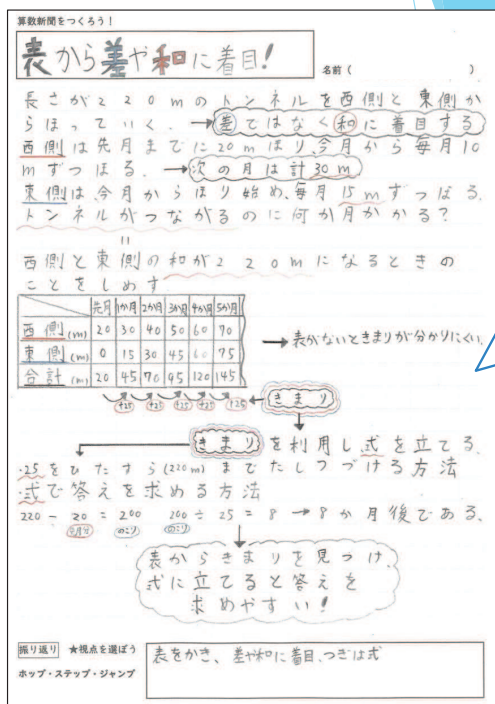 算数新聞をつくろう！
表から差や和に着目！
名前（　　　　　）
長さが２２０mのトンネルを西側と東側か
らほっていく。→差ではなく和に着目する
西側は先月までに20mほり、今月から毎月10
mずつほる。→次の月は計30m
東側は、今月からほり始め、毎月15mずつほる。
トンネルがつながるのに何か月かかる？
＝
西側と東側の和が２２０mになるときの
ことをしめす
先月 1か月 2か月 3か月 4か月 5か月
西側(m) 20 30 40 50 60 70
東側(m) 0 15 30 45 60 75
合計(m) 20 45 70 95 120 145
→表がないときまりが分かりにくい。
+25 +25 +25 +25 +25 ←きまり
きまりを利用し式を立てる。
・25をひたすら(220m)までたしつづける方法
・式で答えを求める方法
220－20＝200 200÷25＝8→8か月後である。
先月分 のこり のこり
表からきまりを見つけ、
式に立てると答えを
求めやすい！
振り返り ★視点を選ぼう
ホップ・ステップ・ジャンプ
表をかき、差や和に着目、つぎは式